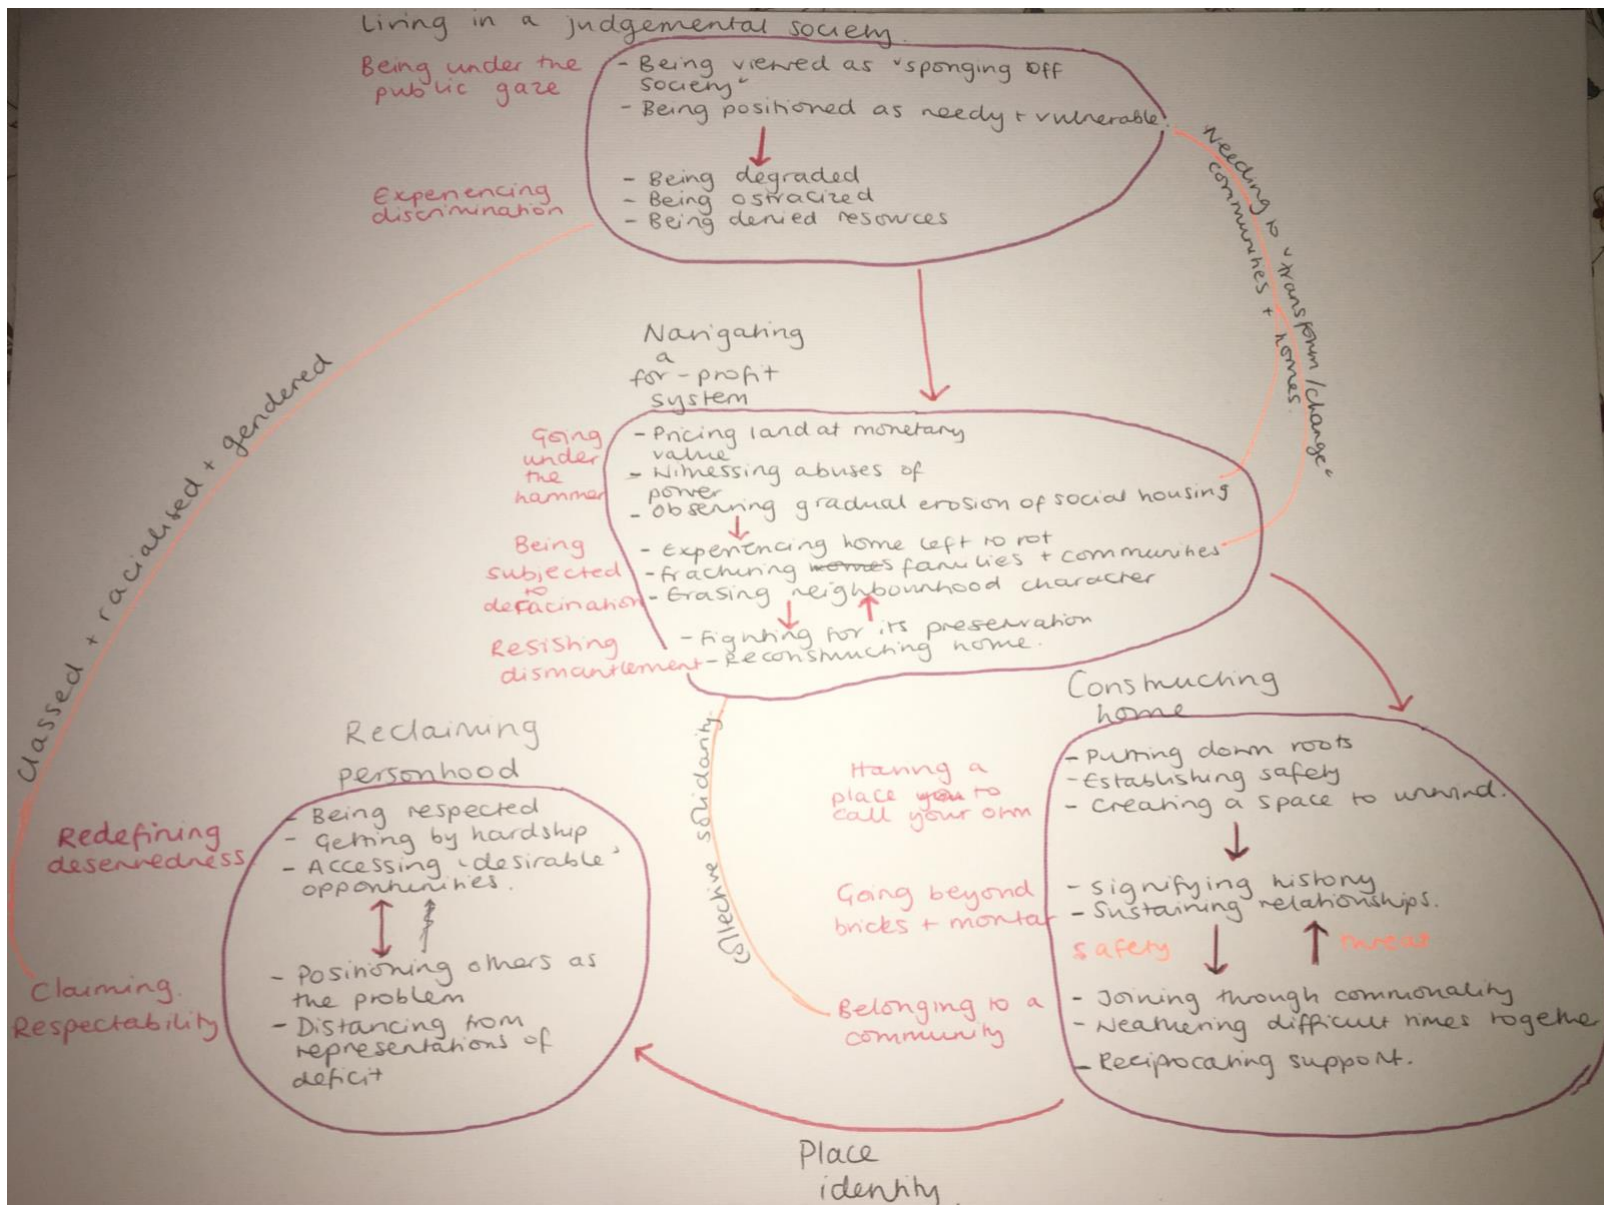 Living in a judgemental society.
Being under the
public gaze
- Being viewed as "sponging off
society"
- Being positioned as needy + vulnerable.
Experiencing
discrimination
- Being degraded
- Being ostracized
- Being denied resources
Needing to "transform/change"
communities + homes.
Classed + racialised + gendered
Navigating
a
for-profit
system
Going
under
the
hammer
- Pricing land at monetary
value
- Witnessing abuses of
power
- Observing gradual erosion of social housing
Being
subjected
to
defacination
- Experiencing home left to rot
- Fracturing homes families + communities
- Erasing neighbourhood character
Resisting
dismantlement
- Fighting for its preservation
- Reconstructing home.
Collective solidarity.
Constructing
home
Having a
place you to
call your own
- Putting down roots
- Establishing safety
- Creating a space to unwind.
Going beyond
bricks + mortar
- Signifying history
- Sustaining relationships.
safety
threat
Belonging to a
community
- Joining through commonality
- Weathering difficult times together
- Reciprocating support.
Place
identity.
Reclaiming
personhood
Redefining
deservedness
- Being respected
- Getting by hardship
- Accessing 'desirable'
opportunities.
Claiming.
Respectability
- Positioning others as
the problem
- Distancing from
representations of
deficit